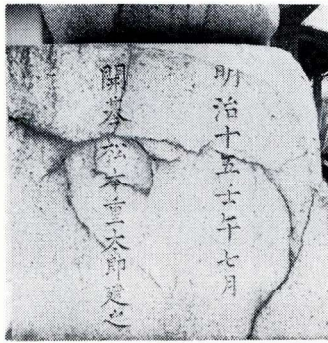 明治十五壬午七月
開基松本重太郎建之